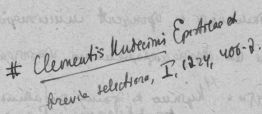 # Clementis Undecimi Epistolae et
brevia selectiora, I, 1724, 406-7.